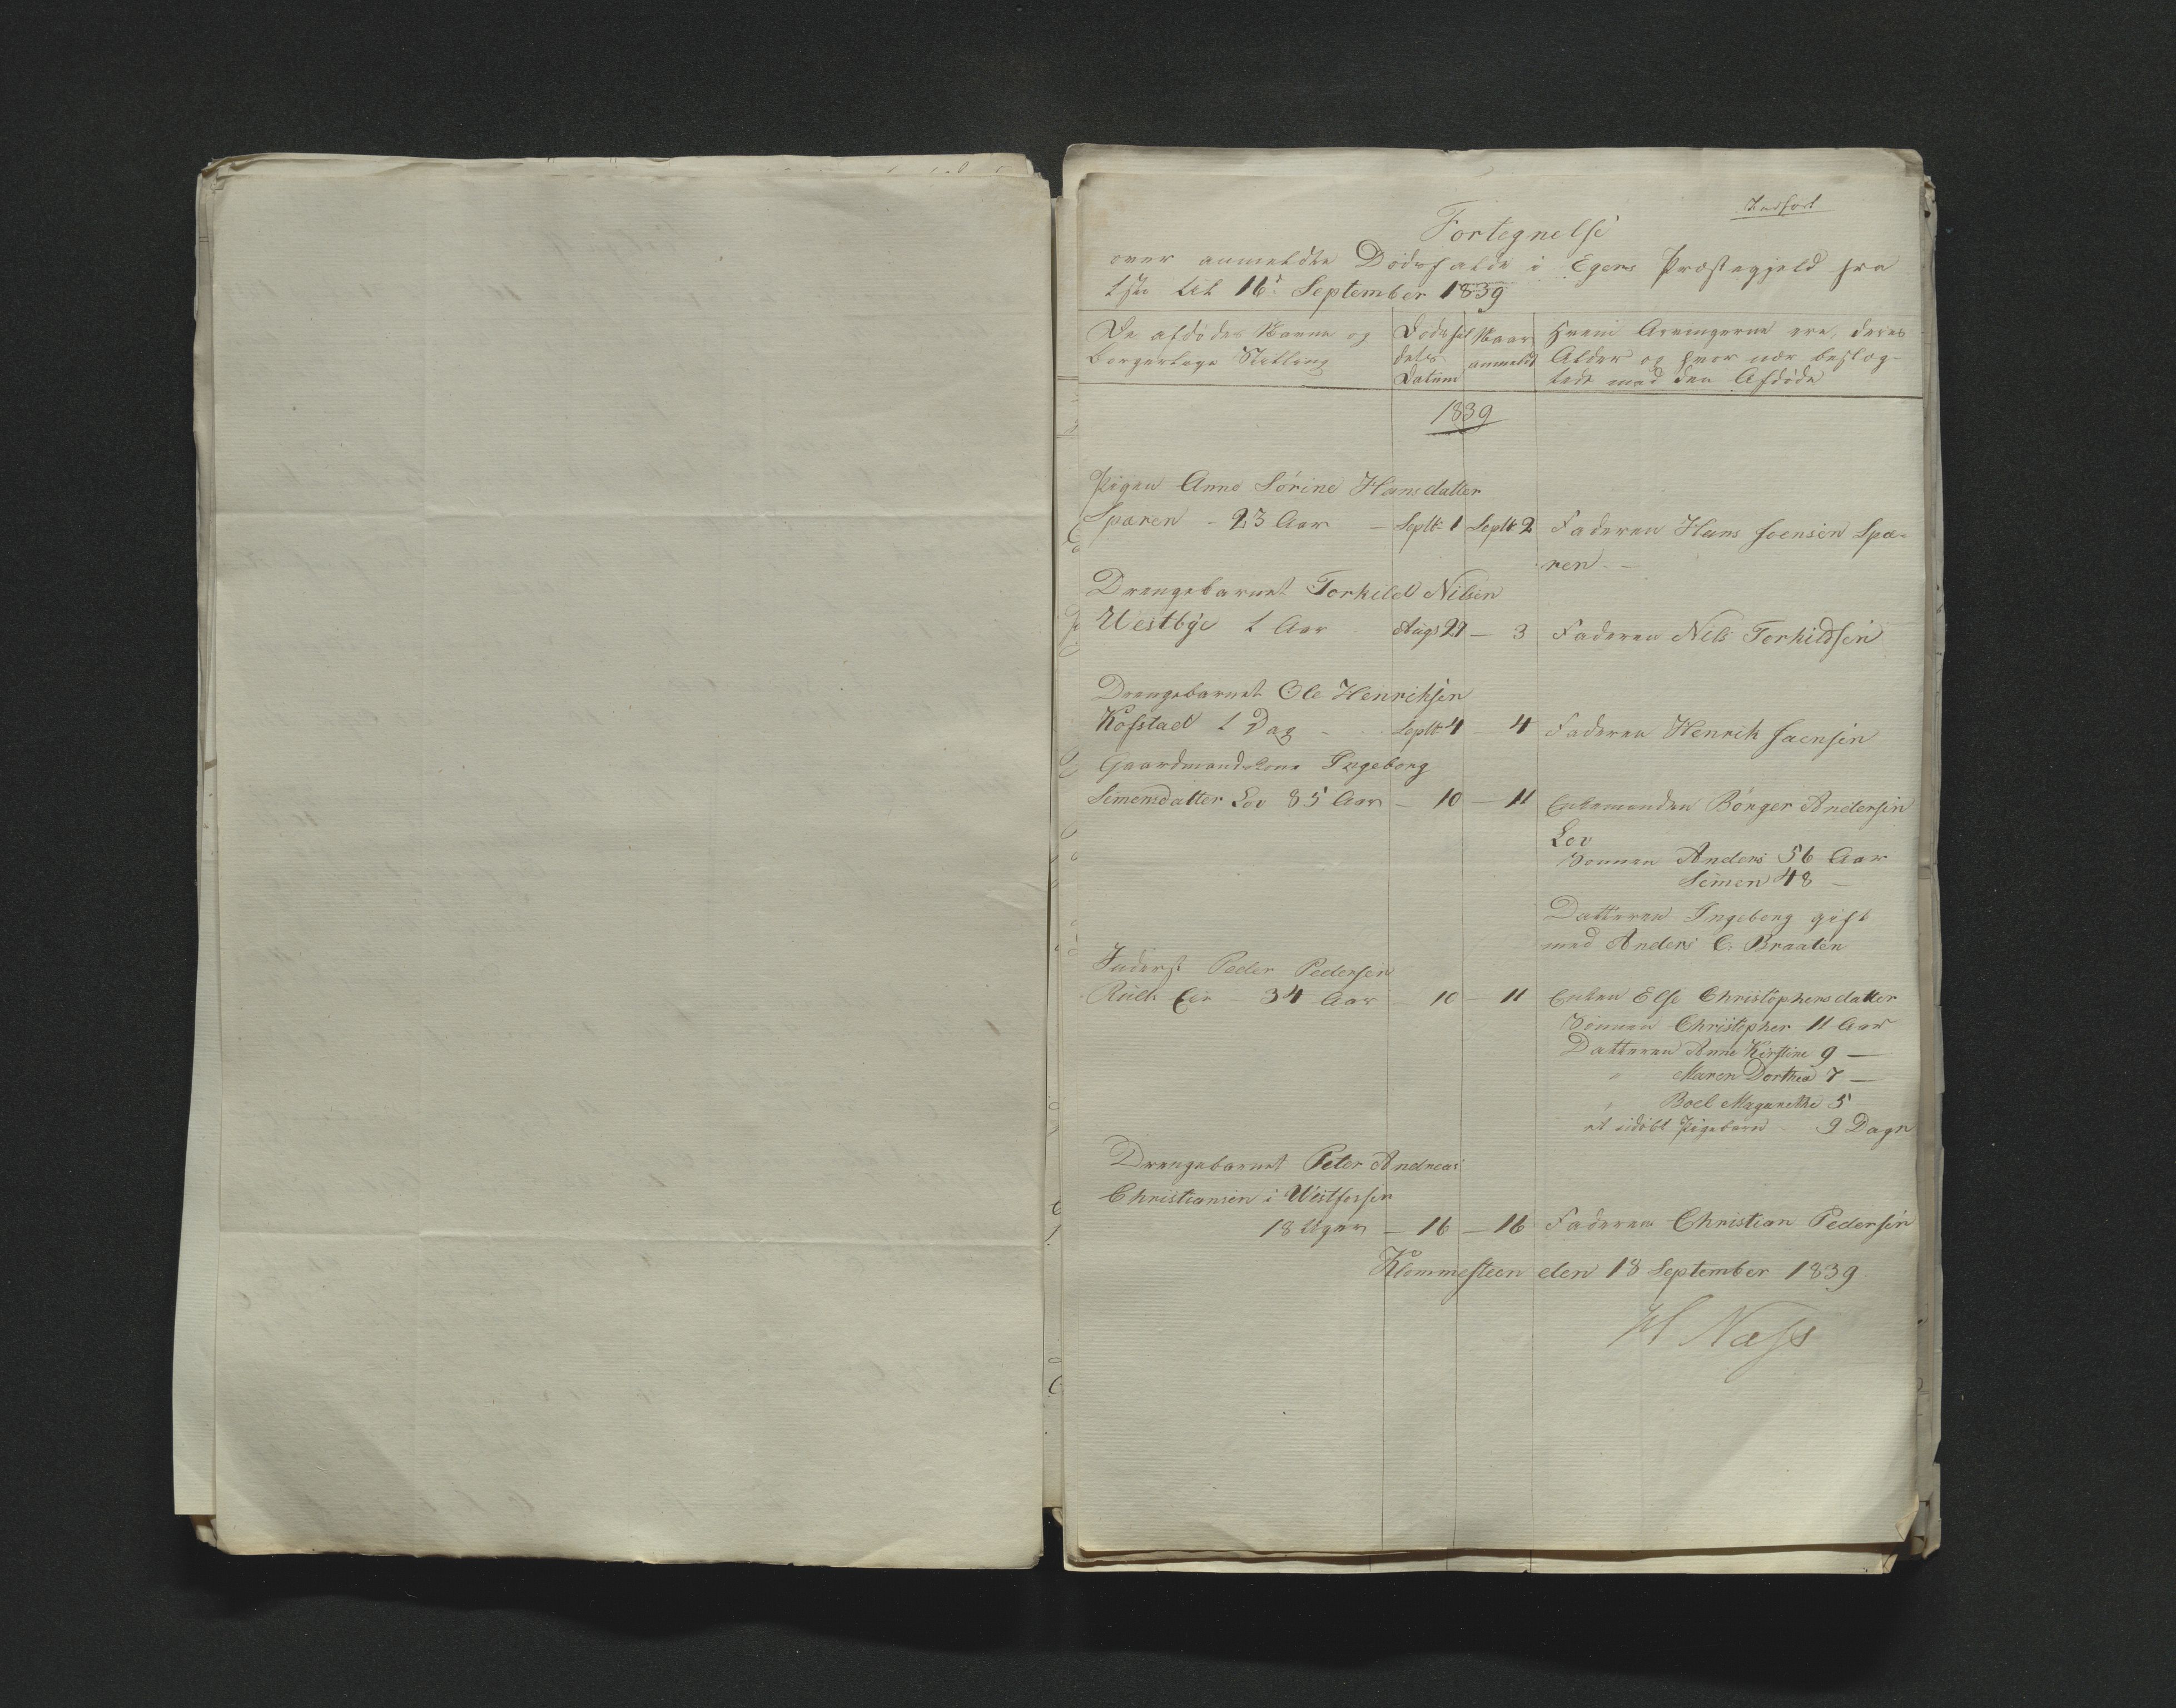 Indført
Fortegnelse
over anmeldte Dødsfalde i Egers Præstegjeld fra
1ste til 16de September 1839
De afdødes Navne og
borgerlige Stilling
Dødsfal
dets
Datum
Naar
anmeldt
Hvem Arvingerne ere, deres
Alder og hvor nær beslæg-
tede med den Afdøde
1839
Pigen Anne Sørine Hansdatter
Sparen - 23 Aar - Septbr 1 Septbr 2 Faderen Hans Joensen Spa-
ren -
Drengebarnet Torkild Nilsen
Westbye 1 Aar Augs 29 - 3 Faderen Nils Torkildsen
Drengebarnet Ole Henriksen
Kopstad 1 Dag - Septbr 4 - 4 Faderen Henrik Jacnsen
Gaardmandskone Ingeborg
Simensdatter Lov 85 Aar - 10 - 11 Enkemanden Børger Andersen
Lov
Sønnen Anders 56 Aar
Simen 48 -
Datteren Ingeborg gift
med Anders C. Braaten
Inderst Peder Pedersen
Ruds Eie - 34 Aar - 10 - 11 Enken Else Christophersdatter
Sønnen Christopher 11 Aar
Datteren Anne Kirstine 9 -
" Maren Dorthea 7 -
" Boel Magarethe 5
et udøbt Pigebarn 9 Dage
Drengebarnet Peter Andreas
Christiansen i Westfossen
18 Uger - 16 - 16 Faderen Christian Pedersen
Klommesteen den 18 September 1839
H Næss